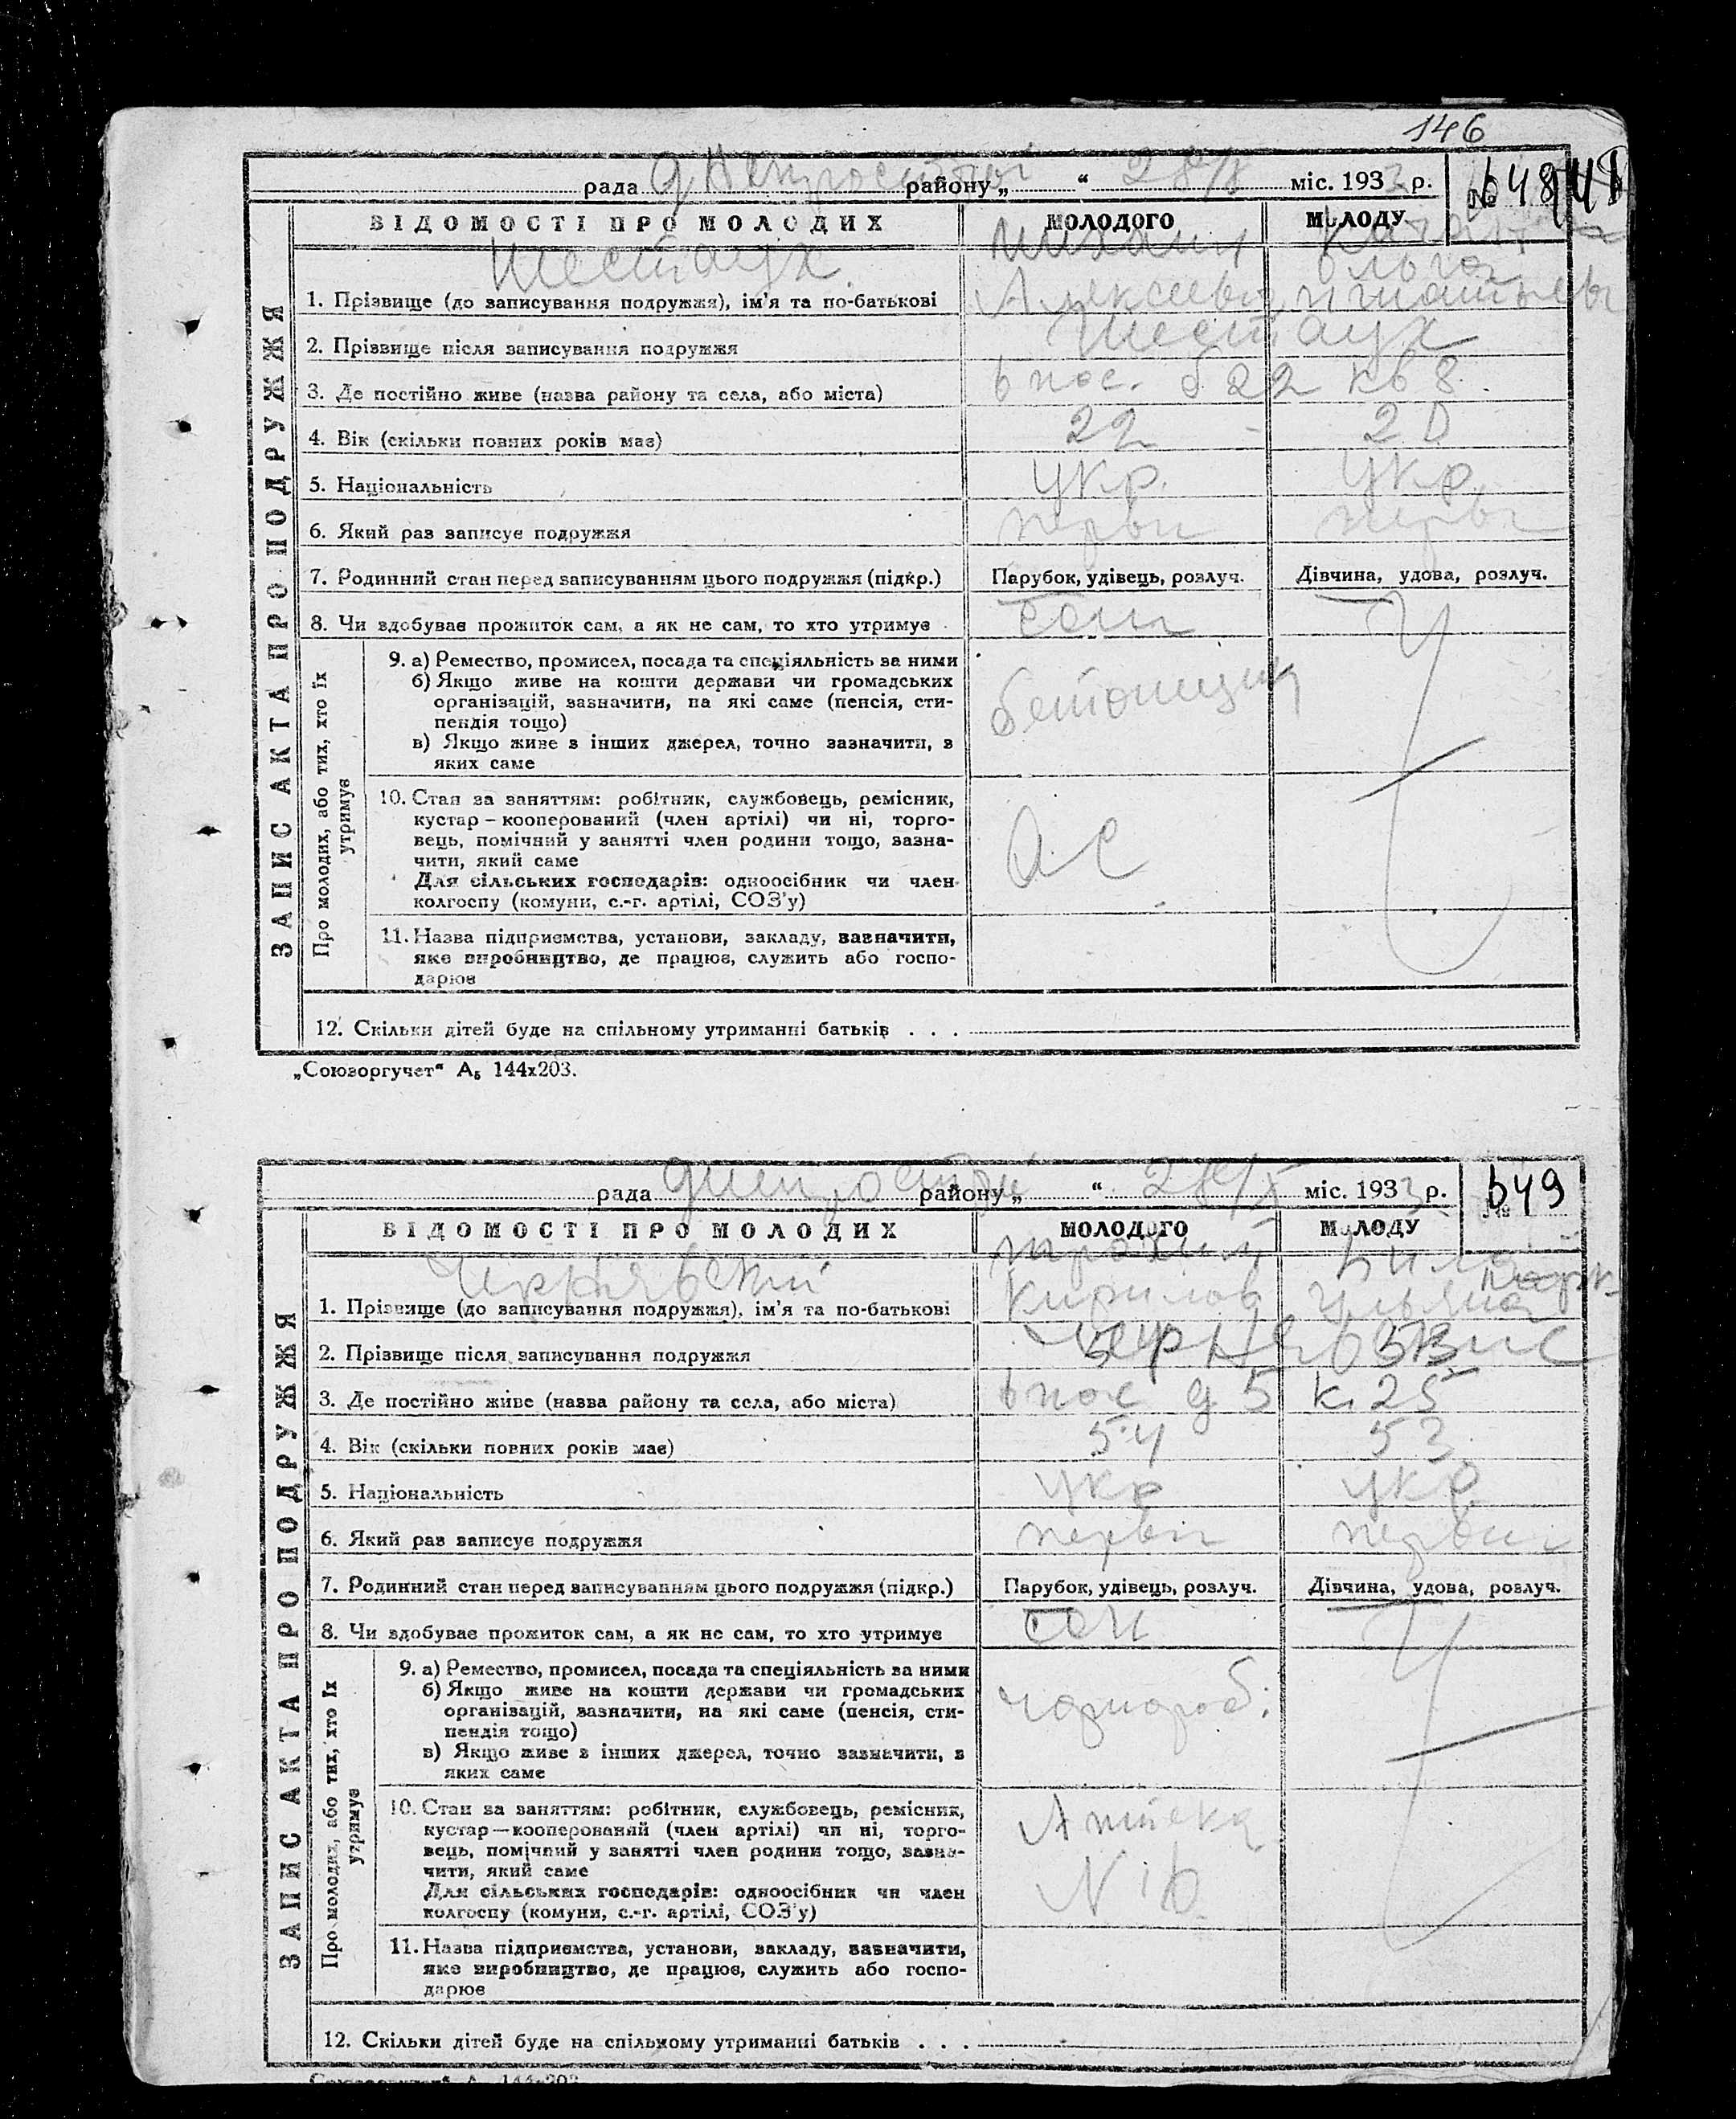 146
рада Днепрострой району „ “ 28/X міс. 1933 р. № 648
ВІДОМОСТІ ПРО МОЛОДИХ МОЛОДОГО МОЛОДУ
ЗАПИС АКТА ПРО ПОДРУЖЖЯ
Шестаух Михаил
Ольга
1. Прізвище (до записування подружжя), ім’я та по-батькові Алексеев Игнатьев
2. Прізвище після записування подружжя Шестаух
3. Де постійно живе (назва району та села, або міста) 6 пос. б 22 кв 8
4. Вік (скільки повних років має) 22 20
5. Національність укр. укр.
6. Який раз записує подружжя первы первы
7. Родинний стан перед записуванням цього подружжя (підкр.) Парубок, удівець, розлуч. Дівчина, удова, розлуч.
8. Чи здобуває прожиток сам, а як не сам, то хто утримує сам
Про молодих, або тих, хто їх утримує
9. а) Ремество, промисел, посада та спеціяльність за ними
б) Якщо живе на кошти держави чи громадських
організацій, зазначити, на які саме (пенсія, сти-
пендія тощо)
в) Якщо живе з інших джерел, точно зазначити, з
яких саме
бетонщик
10. Стан за заняттям: робітник, службовець, ремісник,
кустар – кооперований (член артілі) чи ні, торго-
вець, помічний у занятті член родини тощо, зазна-
чити, який саме
Для сільських господарів: одноосібник чи член
колгоспу (комуни, с.-г. артілі, СОЗ’у)
11. Назва підприємства, установи, закладу, зазначити,
яке виробництво, де працює, служить або госпо-
дарює
12. Скільки дітей буде на спільному утриманні батьків . . .
„Союзоргучет“ А₅ 144х203.
рада Днепрострой району „ “ 28/X міс. 1933 р. 649
ВІДОМОСТІ ПРО МОЛОДИХ МОЛОДОГО МОЛОДУ
ЗАПИС АКТА ПРО ПОДРУЖЖЯ
Чернявский
1. Прізвище (до записування подружжя), ім’я та по-батькові Кирилов Ульяна
2. Прізвище після записування подружжя
3. Де постійно живе (назва району та села, або міста) 6 пос д 5 к. 25
4. Вік (скільки повних років має) 54 53
5. Національність укр укр
6. Який раз записує подружжя первы первы
7. Родинний стан перед записуванням цього подружжя (підкр.) Парубок, удівець, розлуч. Дівчина, удова, розлуч.
8. Чи здобуває прожиток сам, а як не сам, то хто утримує сам
Про молодих, або тих, хто їх утримує
9. а) Ремество, промисел, посада та спеціяльність за ними
б) Якщо живе на кошти держави чи громадських
організацій, зазначити, на які саме (пенсія, сти-
пендія тощо)
в) Якщо живе з інших джерел, точно зазначити, з
яких саме
чорнороб.
10. Стан за заняттям: робітник, службовець, ремісник,
кустар — кооперований (член артілі) чи ні, торго-
вець, помічний у занятті член родини тощо, зазна-
чити, який саме
Для сільських господарів: одноосібник чи член
колгоспу (комуни, с.-г. артілі, СОЗ’у)
Аптека
11. Назва підприємства, установи, закладу, зазначити,
яке виробництво, де працює, служить або госпо-
дарює
12. Скільки дітей буде на спільному утриманні батьків . . .